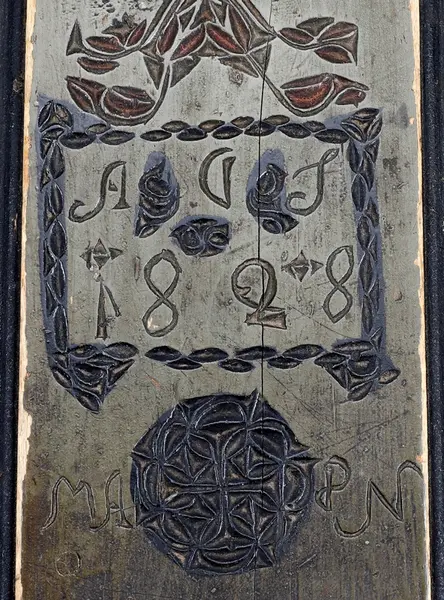 A G I
1828
MA PN